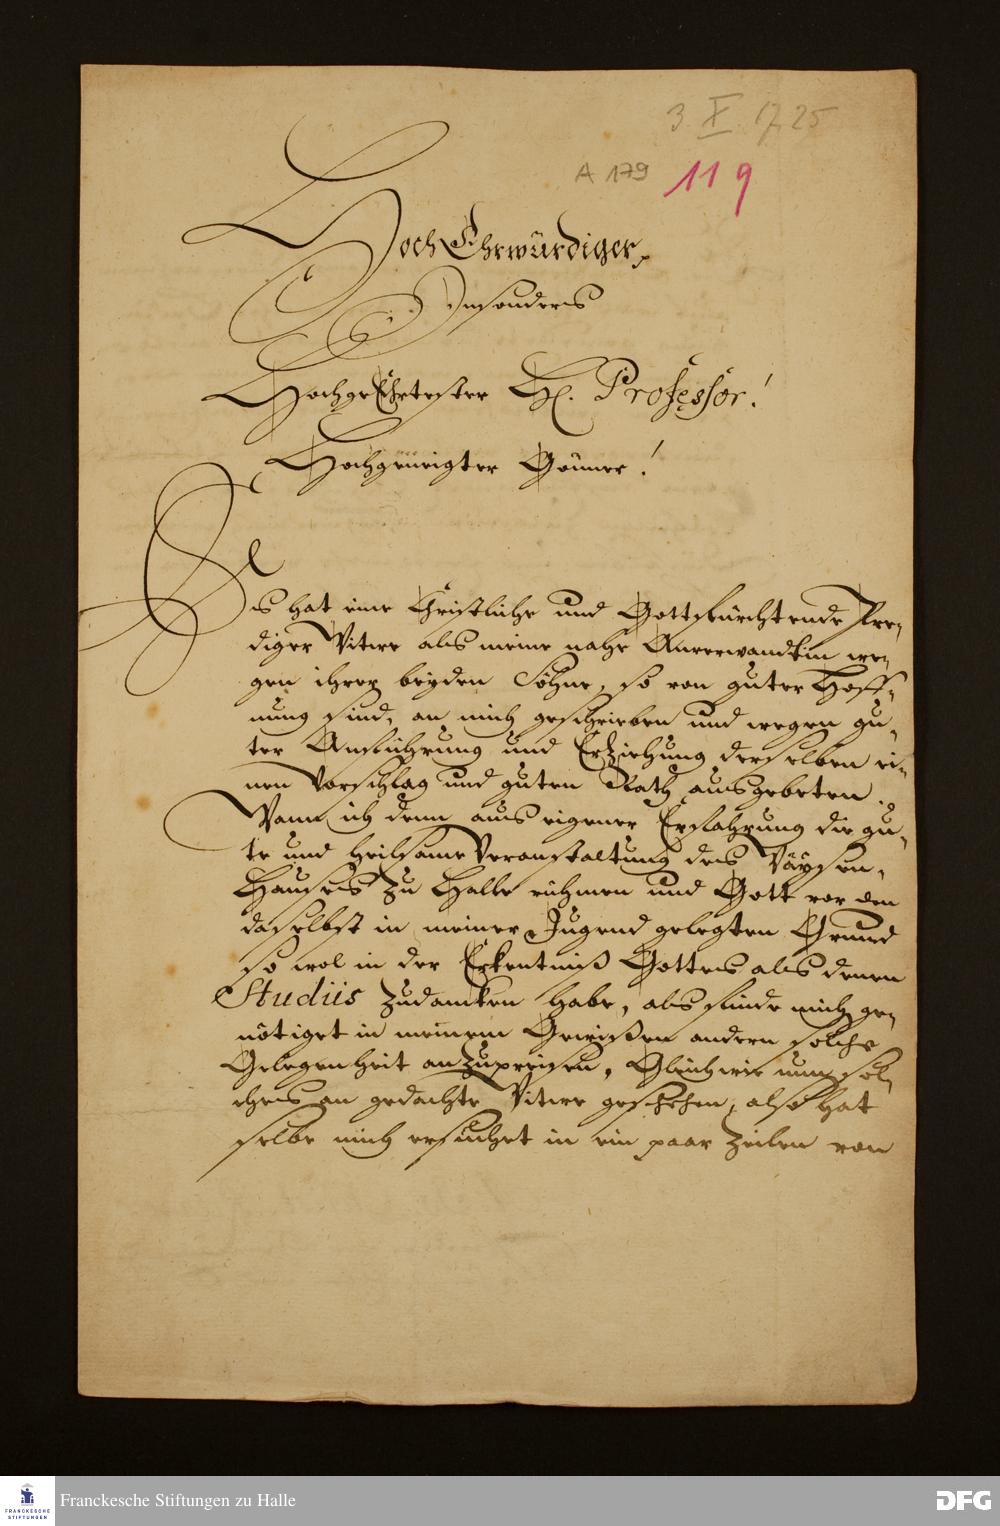 3. X. 1725
A 179 119
HochEhrwürdiger,
Insonders
HochgeEhrtester H. Professor!
Hochgeneigter Gönner!
Es hat eine Christliche und Gottsfürchtende Pre-
diger Witwe als meine nahe Anverwandtin we-
gen ihrer beyden Söhne, so von guter Hoff-
nung sind, an mich geschrieben und wegen gu-
ter Anführung und Erziehung derselben ei-
nen Vorschlag und guten Rath ausgebeten.
Wann ich denn aus eigener Erfahrung die gu-
te und heilsame Veranstaltung des Wäysen-
Hauses zu Halle rühmen und Gott vor den
daselbst in meiner Jugend gelegten Grund
so wol in der Erkentniß Gottes als denen
Studiis zudancken habe, als finde mich ge-
nötiget in meinem Gewißen andern solche
Gelegenheit anzupreisen, Gleich wie nun sol-
ches an gedachte Witwe geschehen, also hat
selbe mich ersuchet in ein paar Zeilen von
FRANCKESCHE
STIFTUNGEN
Franckesche Stiftungen zu Halle
DFG